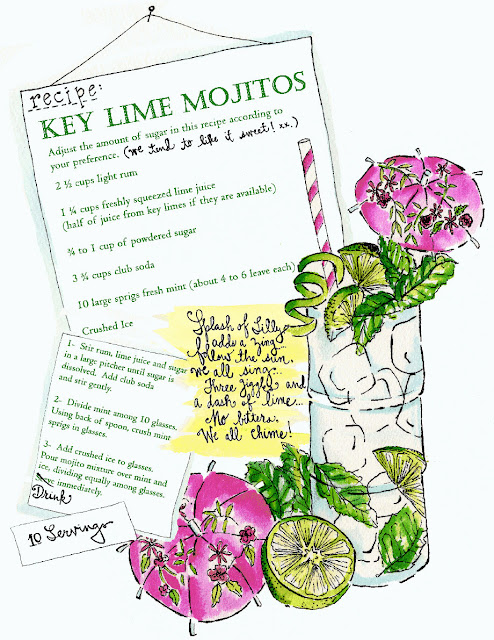 recipe:
KEY LIME MOJITOS
Adjust the amount of sugar in this recipe according to
your preference. (we tend to like it sweet! xx.)
2 ½ cups light rum
1 ¼ cups freshly squeezed lime juice
(half of juice from key limes if they are available)
¾ to 1 cup of powdered sugar
3 ¾ cups club soda
10 large sprigs fresh mint (about 4 to 6 leave each)
Crushed Ice
Splash of Silly
adds a zing...
the sun,
we all sing...
Three giggles and
a dash of lime...
No bitters,
We all chime!
1- Stir rum, lime juice and sugar
in a large pitcher until sugar is
dissolved. Add club soda
and stir gently.
2- Divide mint among 10 glasses.
Using back of spoon, crush mint
sprigs in glasses.
3- Add crushed ice to glasses.
Pour mojito mixture over mint and
ice, dividing equally among glasses.
immediately.
Drink
10 Servings